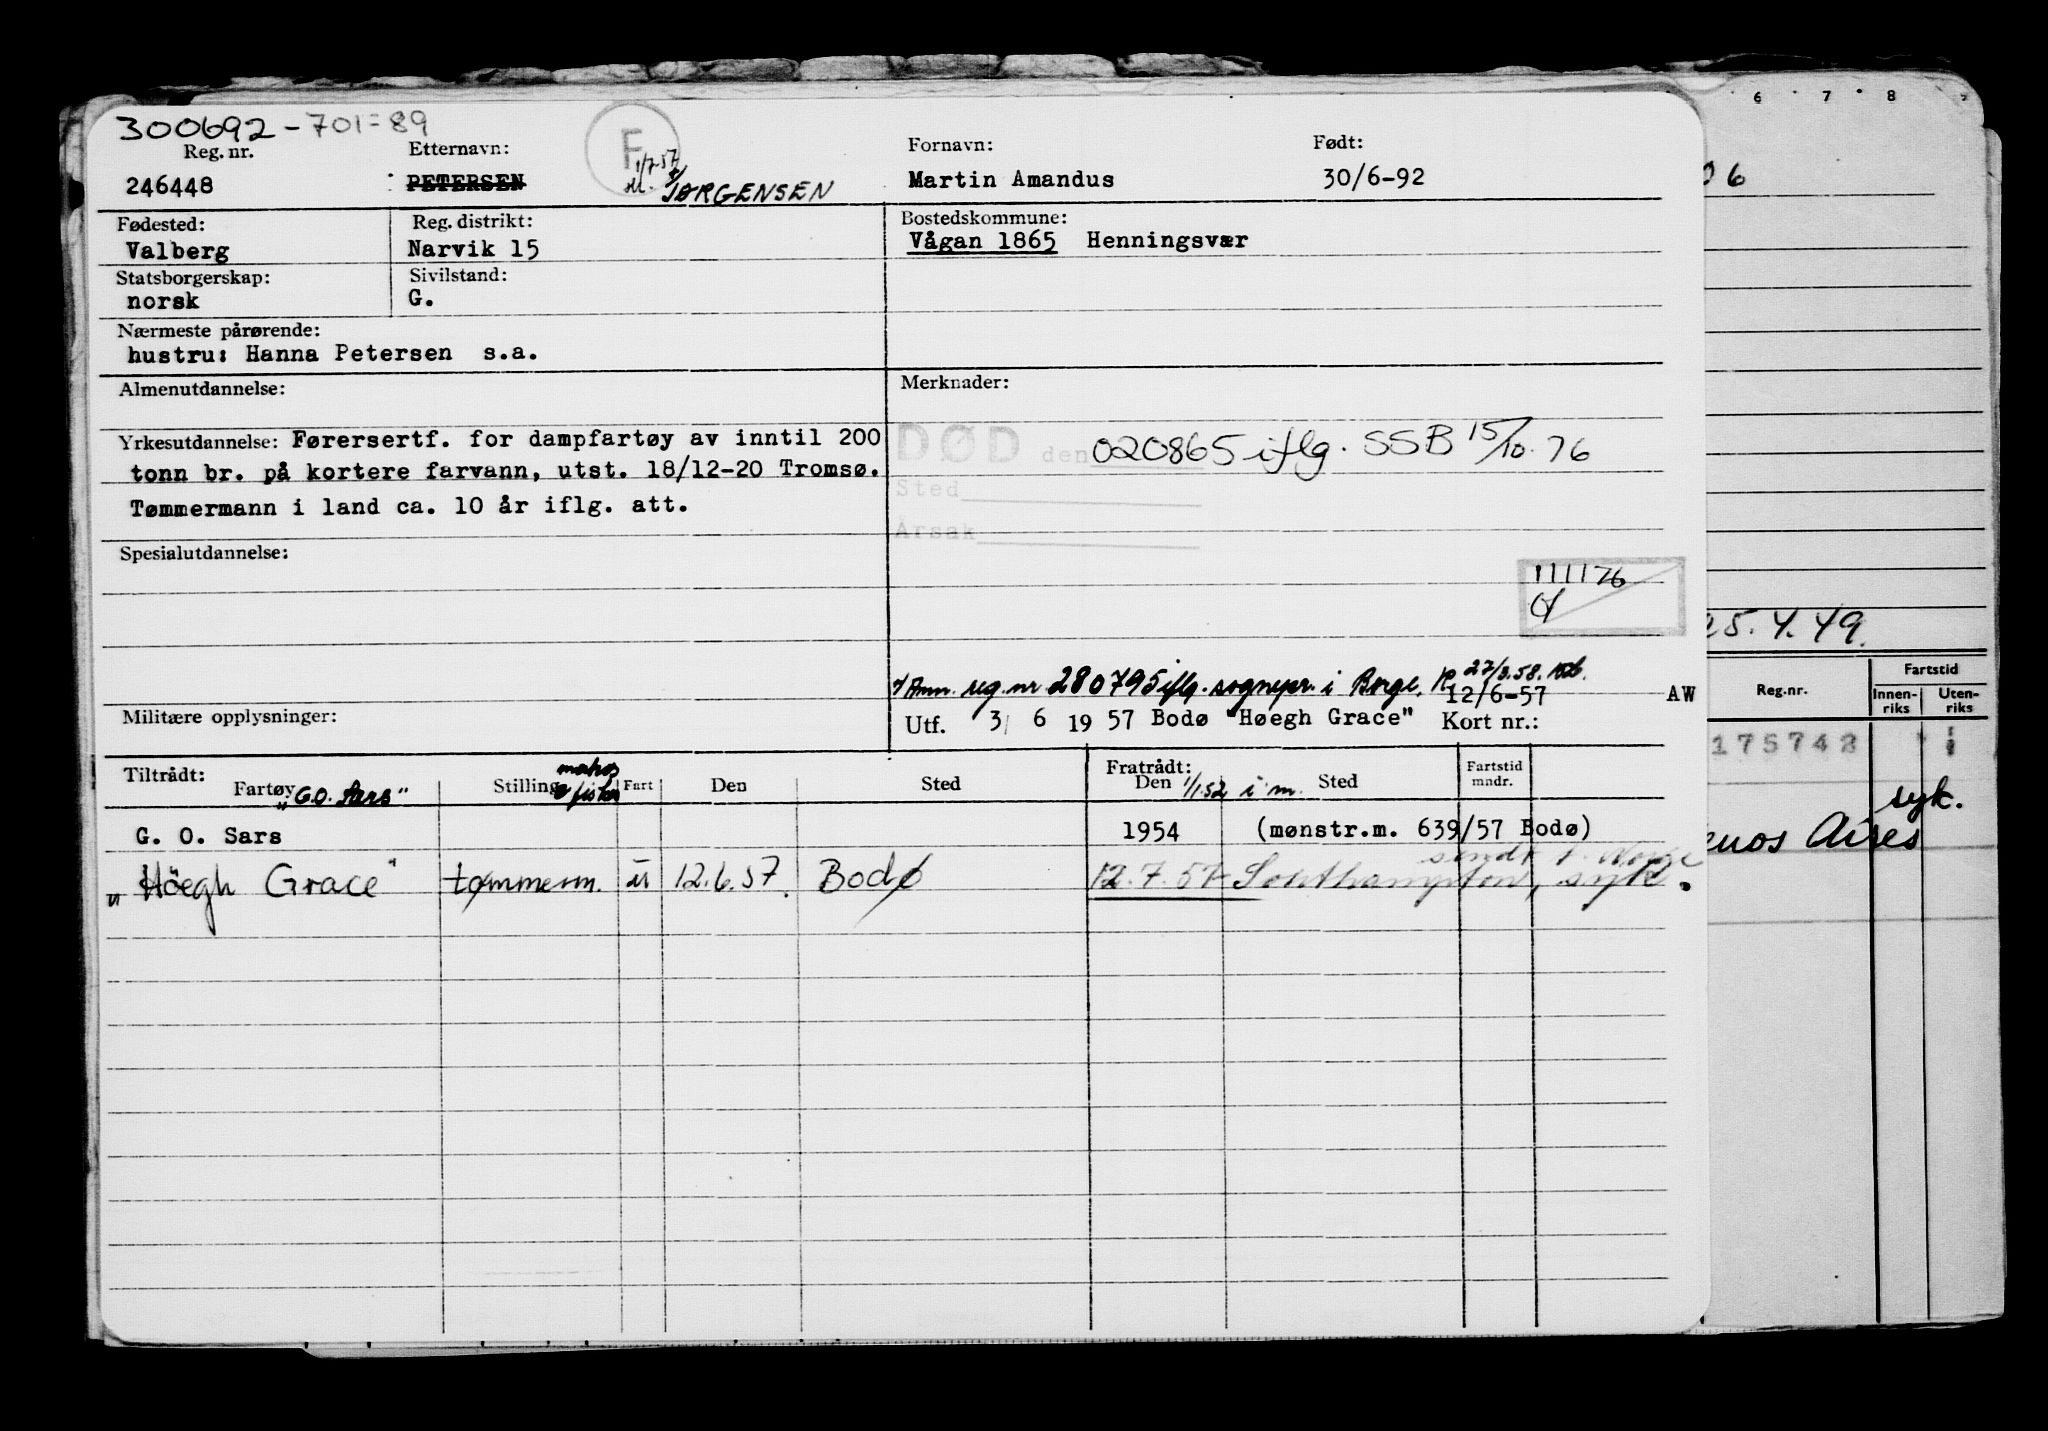 300692-701=89
Reg. nr. Etternavn: F Fornavn: Født:
246448 PETERSEN 1/7-57 JØRGENSEN Martin Amandus 30/6-92
Fødested: Reg. distrikt: Bostedskommune:
Valberg Narvik 15 Vågan 1865 Henningsvær
Statsborgerskap: Sivilstand:
norsk G.
Nærmeste pårørende:
hustru: Hanna Petersen s.a.
Almenutdannelse: Merknader:
Yrkesutdannelse: Førersertf. for dampfartøy av inntil 200
tonn br. på kortere farvann, utst. 18/12-20 Tromsø.
Tømmermann i land ca. 10 år iflg. att.
DØD den 020865 iflg. SSB 15/10. 76
Sted
Årsak
Spesialutdannelse:
111176
Ann. reg. nr 280795 iflg. sognepr. i Borge. 27/3.58.
12/6-57 AW
Militære opplysninger: Utf. 3/ 6 19 57 Bodø "Høegh Grace" Kort nr.:
Tiltrådt: Fratrådt:
Fartøy Stilling Fart Den Sted Den Sted Fartstid mndr.
"G.O. Sars" matros fisker 1/1.52 i m.
G. O. Sars 1954 (mønstr.m. 639/57 Bodø)
"Höegh Grace" tømmerm. u 12.6.57. Bodø 12.7.57 Southampton, syk.
sendt t. Norge
6 7 8
06
25.4.49.
Reg.nr. Fartstid
Innen-riks Uten-riks
175742
syk.
enos Aires